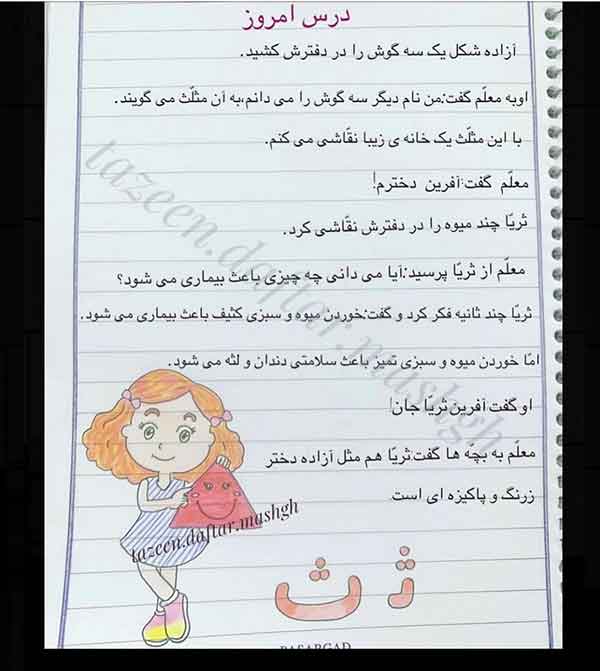 درس امروز
آزاده شکل یک سه گوش را در دفترش کشید.
اوبه معلّم گفت:من نام دیگر سه گوش را می دانم،به آن مثلّث می گویند.
با این مثلّث یک خانه ی زیبا نقّاشی می کنم.
معلّم گفت:آفرین دخترم!
ثریّا چند میوه را در دفترش نقّاشی کرد.
معلّم از ثریّا پرسید:آیا می دانی چه چیزی باعث بیماری می شود؟
ثریّا چند ثانیه فکر کرد و گفت:خوردن میوه و سبزی کثیف باعث بیماری می شود.
امّا خوردن میوه و سبزی تمیز باعث سلامتی دندان و لثه می شود.
او گفت:آفرین ثریّا جان!
معلّم به بچّه ها گفت:ثریّا هم مثل آزاده دختر
زرنگ و پاکیزه ای است
tazeen.daftar.mashgh
tazeen.daftar.mashgh
ثـ ث
PASARGAD